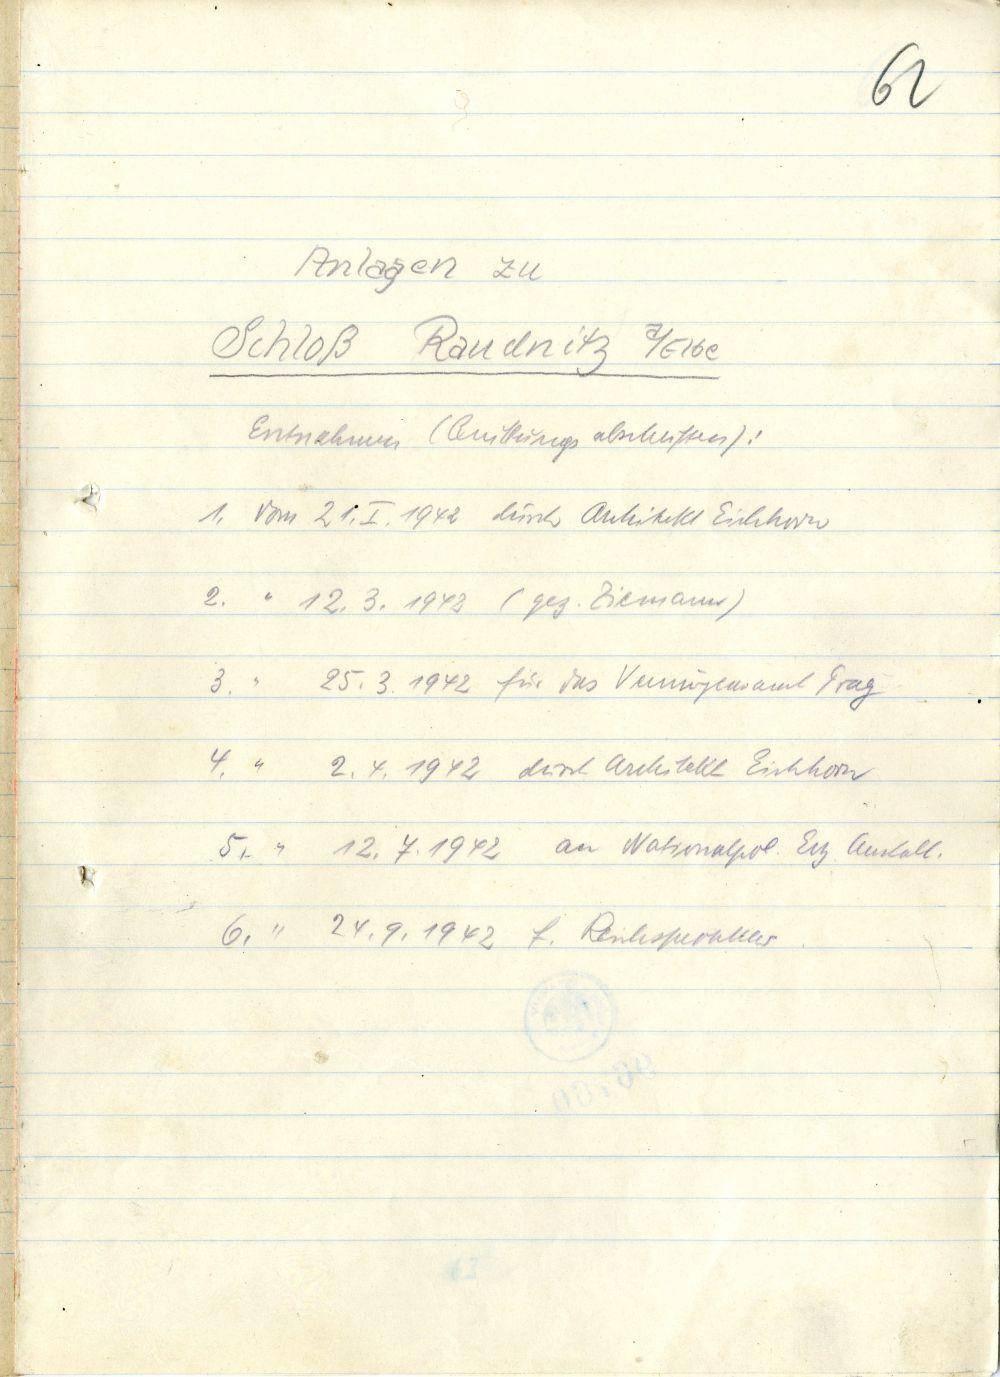 62
Anlagen zu
Schloß Raudnitz a/Elbe
Entnahmen (Quittungsabschriften):
1. Vom 21. I. 1942 durch Architekt Eichhorn
2. " 12. 3. 1942 (gez. Ziemann)
3. " 25. 3. 1942 für das Vermögensamt Prag
4. " 2. 4. 1942 durch Architekt Eichhorn
5. " 12. 7. 1942 an Nationalpol. Erz. Anstalt.
6. " 24. 9. 1942 f. Reichsprotektor